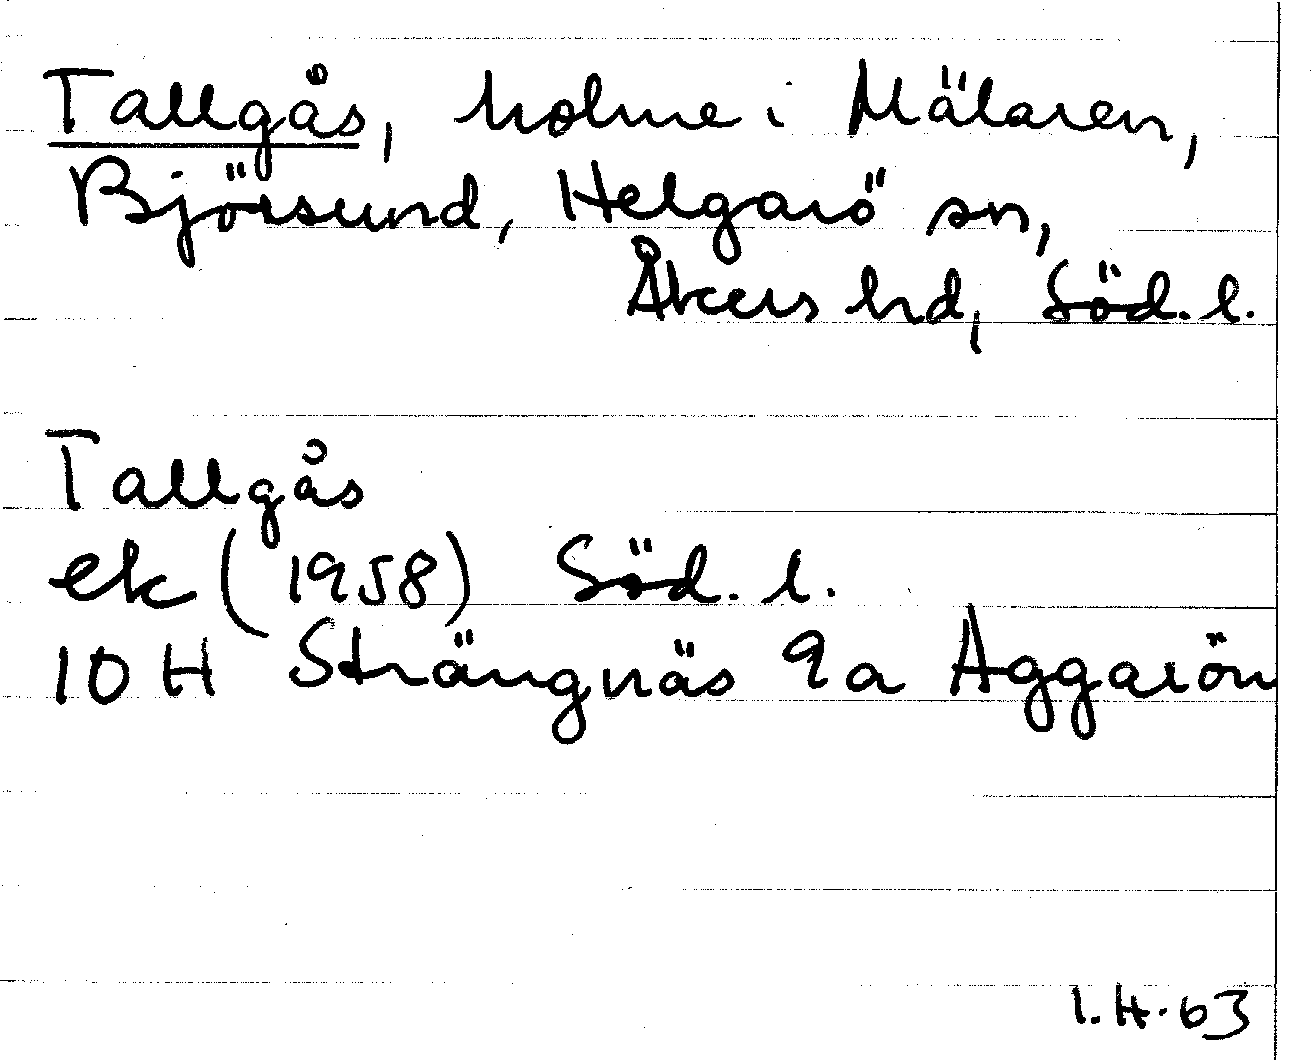 Tallgås, holme i Mälaren,
Björsund, Helgarö sn,
Åkers hd, Söd. l.
Tallgås
ek (1958) Söd. l.
10 H Strängnäs 9a Aggarön
I.H. 63